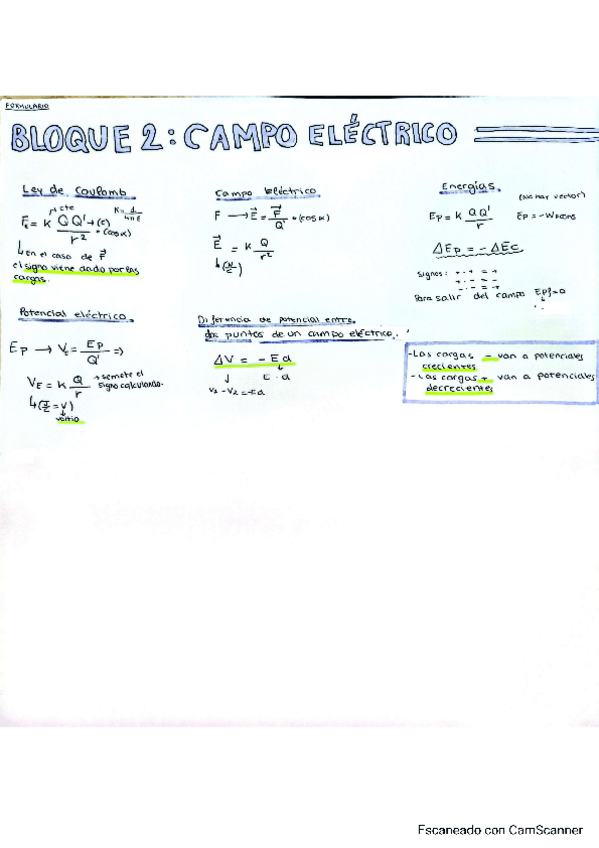 FORMULARIO
BLOQUE 2: CAMPO ELÉCTRICO
Ley de Coulomb
cte
F = K QQ' → (C)
r²
• (cos α)
↳ en el caso de F⃗
el signo viene dado por las
cargas.
Campo Eléctrico
F → E⃗ = F⃗ • (cos α)
Q'
E⃗ = K Q
r²
Energías.
(No hay vector)
Ep = K QQ'
r
ΔEp = -ΔEc
Signos: + · + = +
- · - = +
Para salir del campo
Potencial eléctrico.
Ep → VE = Ep ⇒
Q'
VE = K Q
r
→ se mete el
signo calculando.
↳ (J/C = V)
voltio
Diferencia de potencial entre
dos puntos de un campo eléctrico.
ΔV = - Ed
↓ E · d
V1 - V2 = -Ed
- Las cargas - van a potenciales
crecientes
- Las cargas + van a potenciales
decrecientes
Escaneado con CamScanner